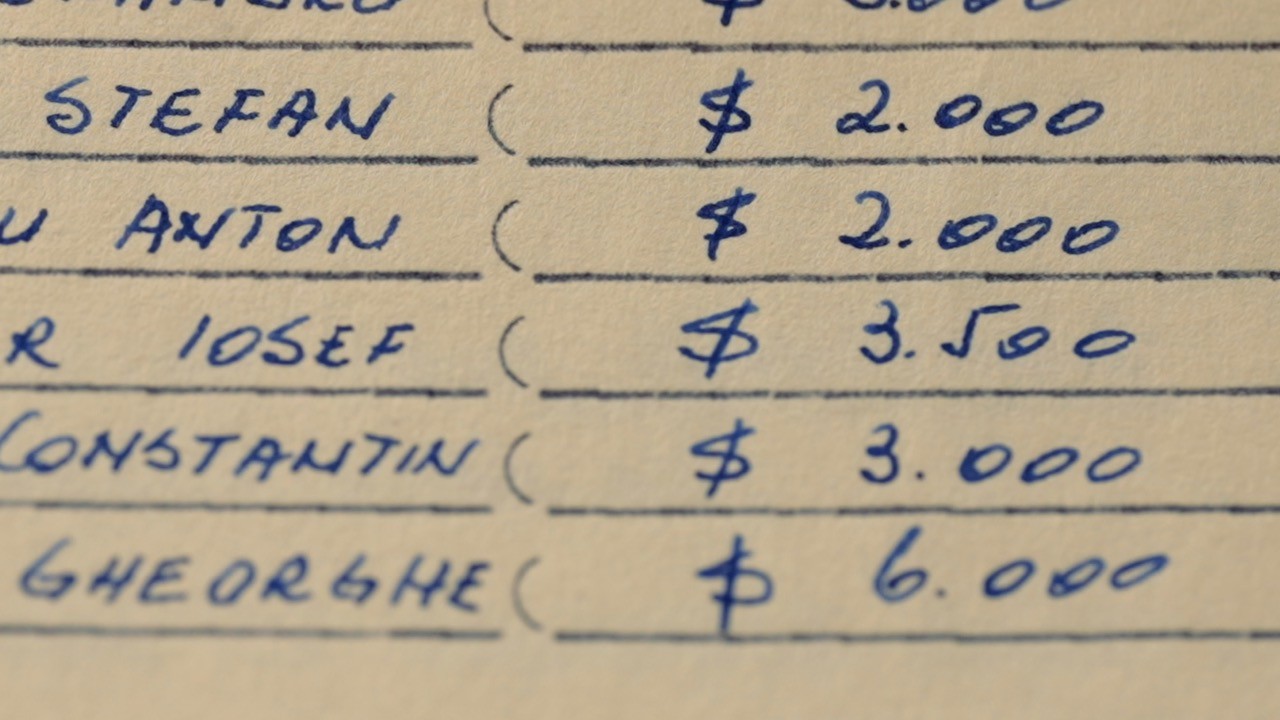 STEFAN ( $ 2.000
U ANTON ( $ 2.000
R IOSEF ( $ 3.500
CONSTANTIN ( $ 3.000
GHEORGHE ( $ 6.000